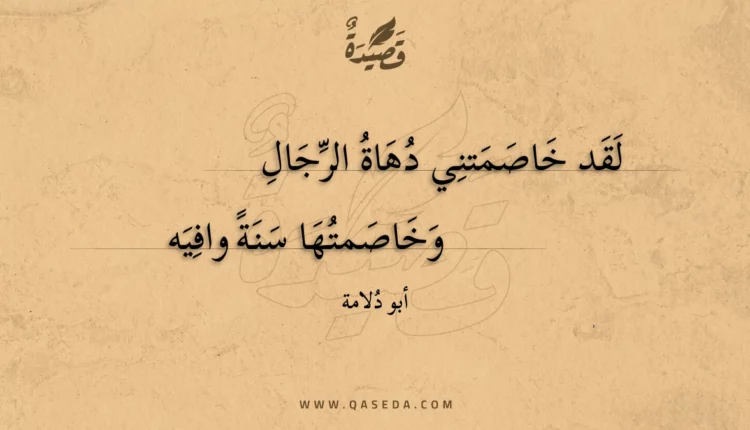 قَصِيْدَةٌ
لَقَد خَاصَمَتنِي دُهَاةُ الرِّجَالِ
وَخَاصَمتُهَا سَنَةً وافِيَه
أبو دُلامة
WWW.QASEDA.COM